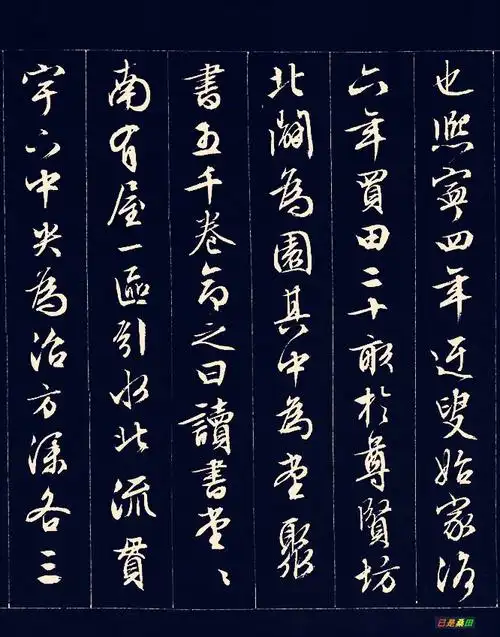 也熙寧四年迂叟始家洛
六年買田二十畝於尊賢坊
北闢為園其中為堂聚
書五千卷命之曰讀書堂〻
南有屋一區引水北流貫
宇下中央為沼方深各三
已是桑田